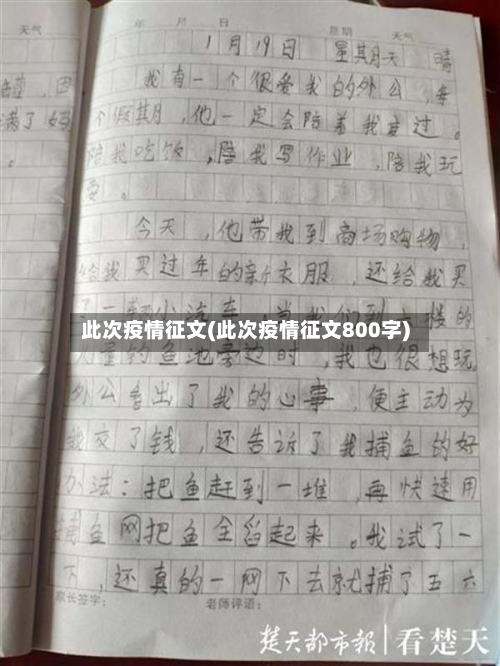 天气
年 月 日 星期 天气
1月19日 星期天 晴
我有一个很爱我的外公,每
个假期,他一定会陪着我度过。
陪我吃饭,陪我写作业,陪我玩
耍。
今天,他带我到商场购物,
给我买过年的新衣服,还给我买
了一辆小汽车。当我们到一楼的
此次疫情征文(此次疫情征文800字)
童钓鱼池旁边时,我也很想玩
外公看出了我的心事,便主动为
我交了钱,还告诉了我捕鱼的好
办法:把鱼赶到一堆,再快速用
捕鱼网把鱼全舀起来。我试了一
下,还真的一网下去就捕了五六
家长签字: 老师评语:
楚天都市报 看楚天